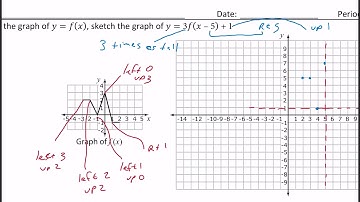 Date: Perio
the graph of y = f(x), sketch the graph of y = 3f(x − 5) + 1
3 times as tall
Rt 5
up 1
left 0
up 3
y
4
3
2
1
-5 -4 -3 -2 -1 1 2 3 4 5 x
-1
-2
Graph of f(x)
left 3
up 2
left 2
up 2
left 1
up 0
Rt 1
y
9
8
7
6
5
4
3
2
1
-14 -12 -10 -9 -8 -7 -6 -5 -4 -3 -2 -1 1 2 3 4 5 6 7 8 9
-1
-2
-3
-4
-5
-6
-7
-8
-9